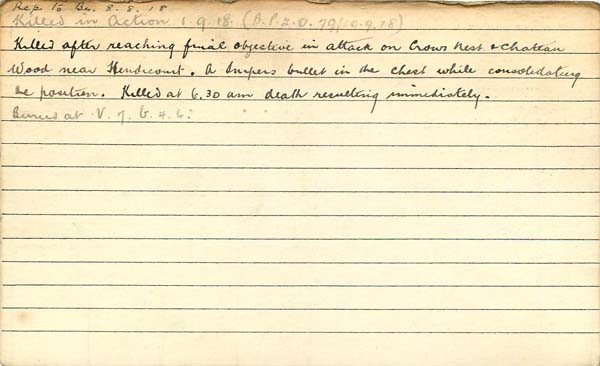 Rep. to Bn. 8.8.18
Killed in Action 1.9.18. (B.P.2.O.79/10.9.18)
Killed after reaching final objective in attack on Crows Nest & Chateau
Wood near Hendicourt. A snipers bullet in the chest while consolidating
the position. Killed at 6.30 am death resulting immediately.
Buried at V.7.b.4.6.